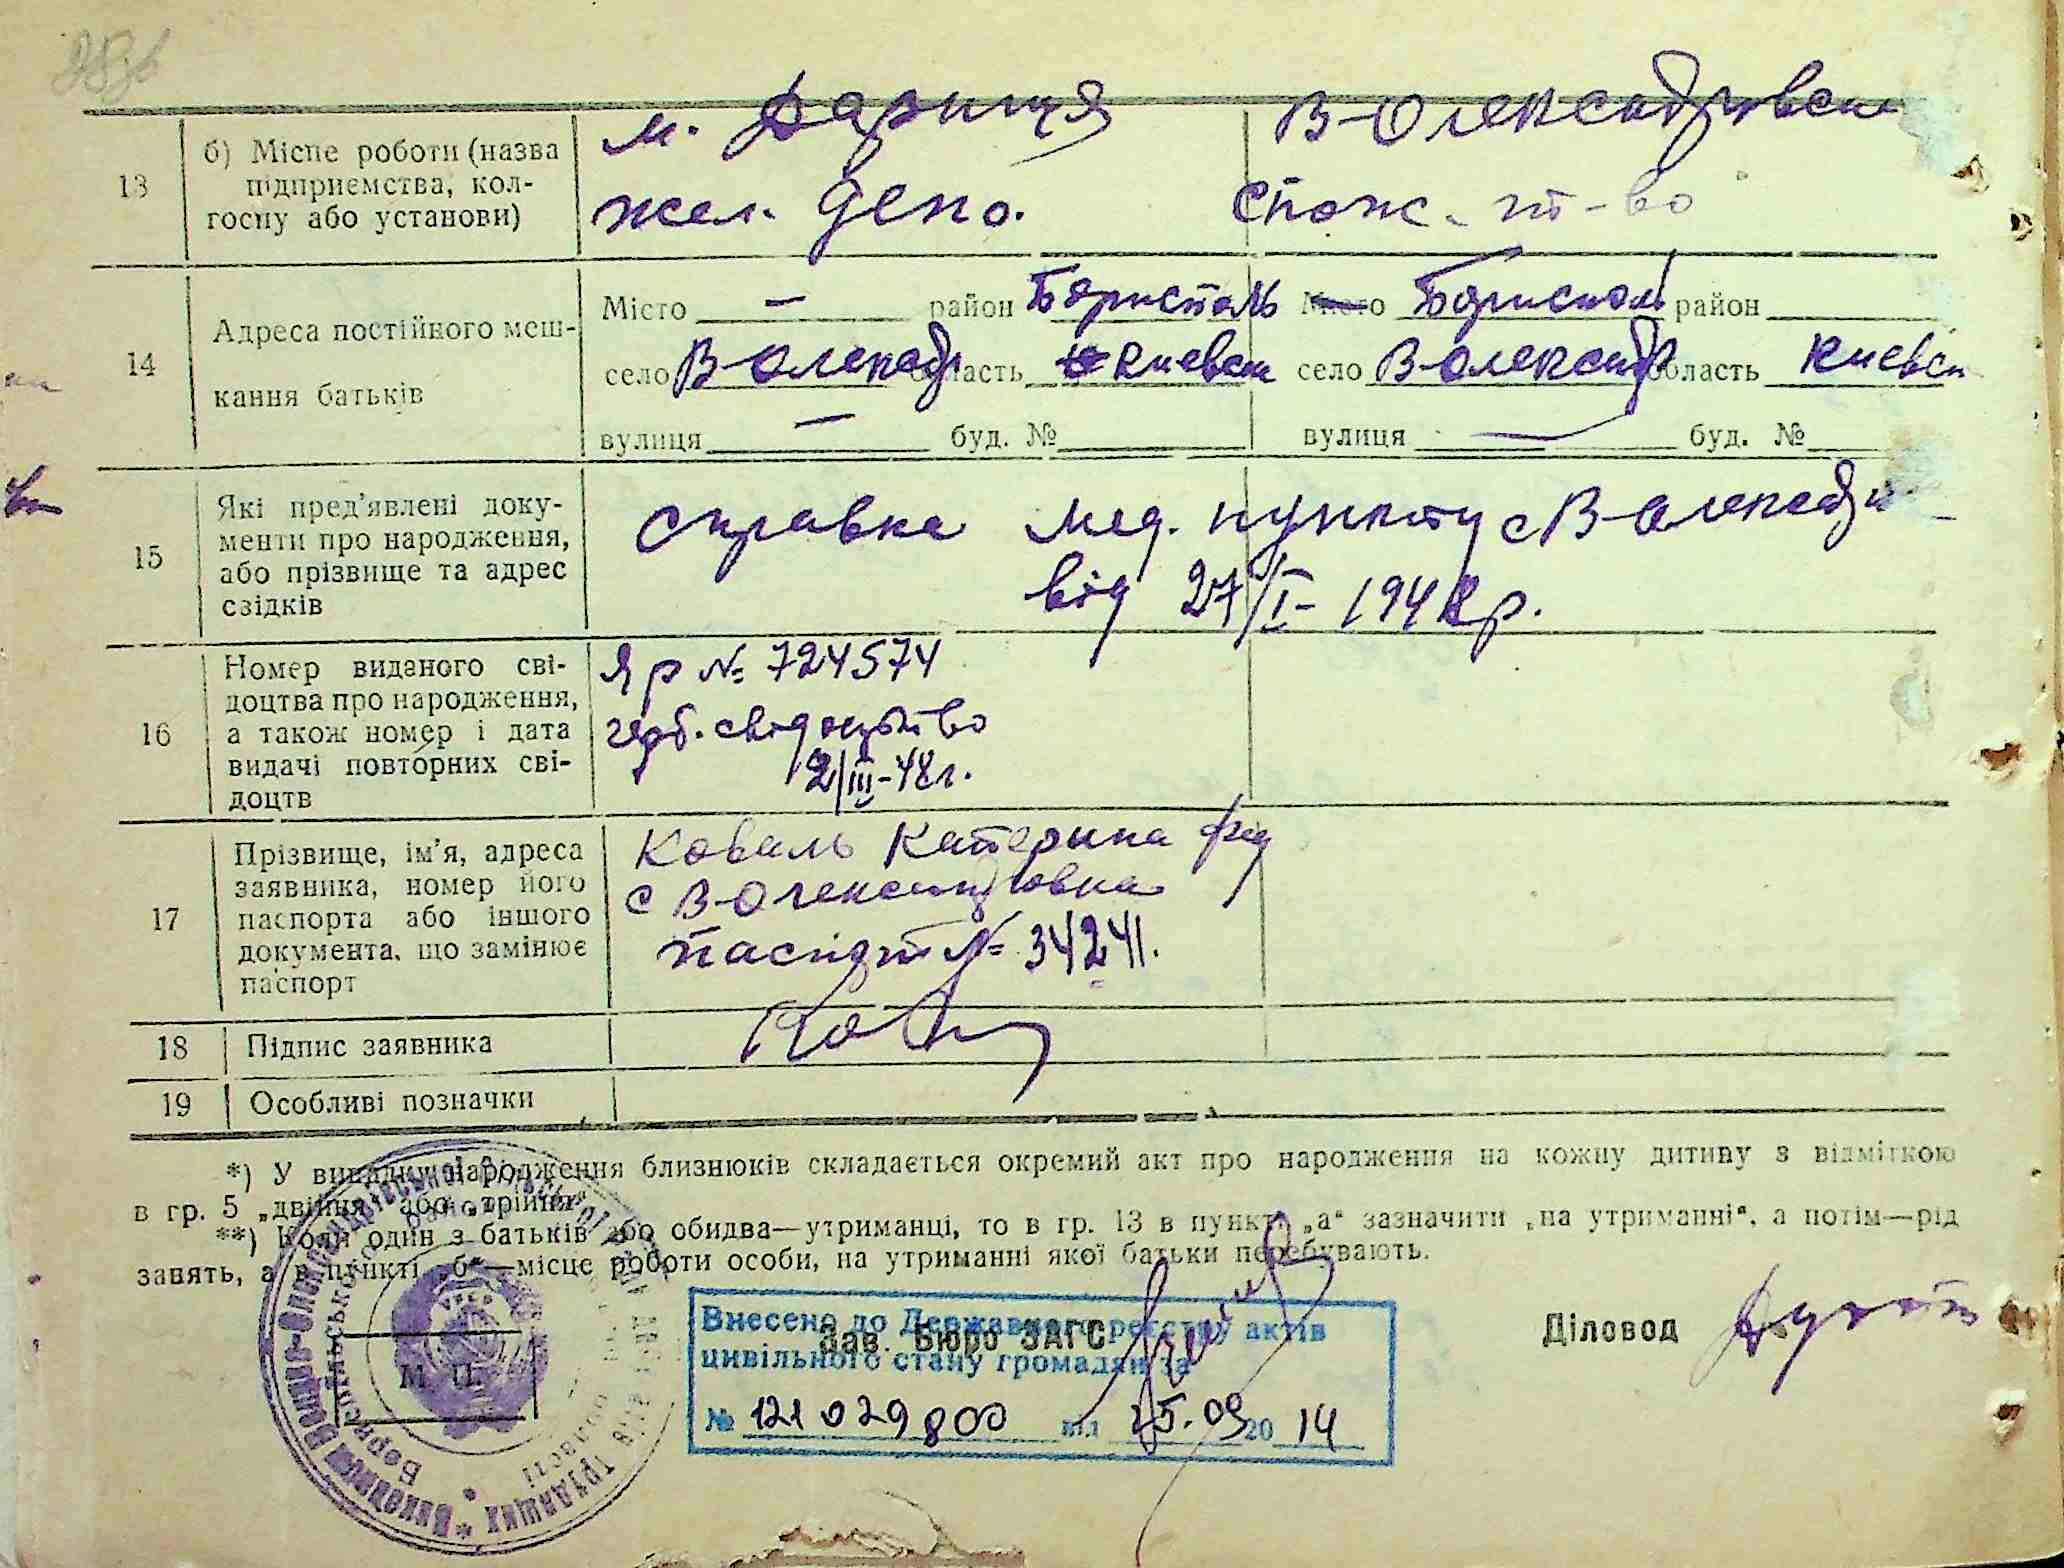 13
б) Місце роботи (назва
підприємства, кол-
госпу або установи)
м. Дарниця
жел. депо.
В-Олександровськ
спож. т-во
14
Адреса постійного меш-
кання батьків
Місто — район Бориспіль
село В-Олександ область Киевськ
вулиця — буд. №
Місто Бориспіль район
село В-Олександ область Киевськ
вулиця — буд. №
15
Які пред'явлені доку-
менти про народження,
або прізвище та адрес
свідків
справка мед. пункту с В-Олександр
від 27/I-1948р.
16
Номер виданого сві-
доцтва про народження,
а також номер і дата
видачі повторних сві-
доцтв
Яр № 724574
герб. свідоцтво
2/III-48г.
17
Прізвище, ім'я, адреса
заявника, номер його
паспорта або іншого
документа, що замінює
паспорт
Коваль Катерина Фед
с В-Олександровка
паспорт № 34241.
18
Підпис заявника
19
Особливі позначки
*) У випадку народження близнюків складається окремий акт про народження на кожну дитину з відміткою
в гр. 5 „двійня" або „трійня"
**) Коли один з батьків або обидва—утриманці, то в гр. 13 в пункті „а" зазначити „на утриманні", а потім—рід
занять, а в пункті „б"—місце роботи особи, на утриманні якої батьки перебувають.
М. П.
Зав. Бюро ЗАГС
Діловод
Внесено до Державного реєстру актів
цивільного стану громадян за
№ 121029800 від 25.09 2014